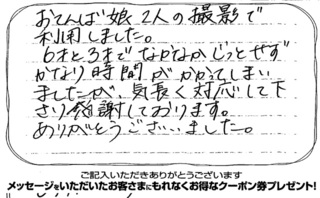 おてんば娘2人の撮影で
利用しました。
6才と3才でなかなかじっとせず
かなり時間がかかってしまい
ましたが、気長く対応して下
さり感謝しております。
ありがとうございました。
ご記入いただきありがとうございます
メッセージをいただいたお客さまにもれなくお得なクーポン券プレゼント!